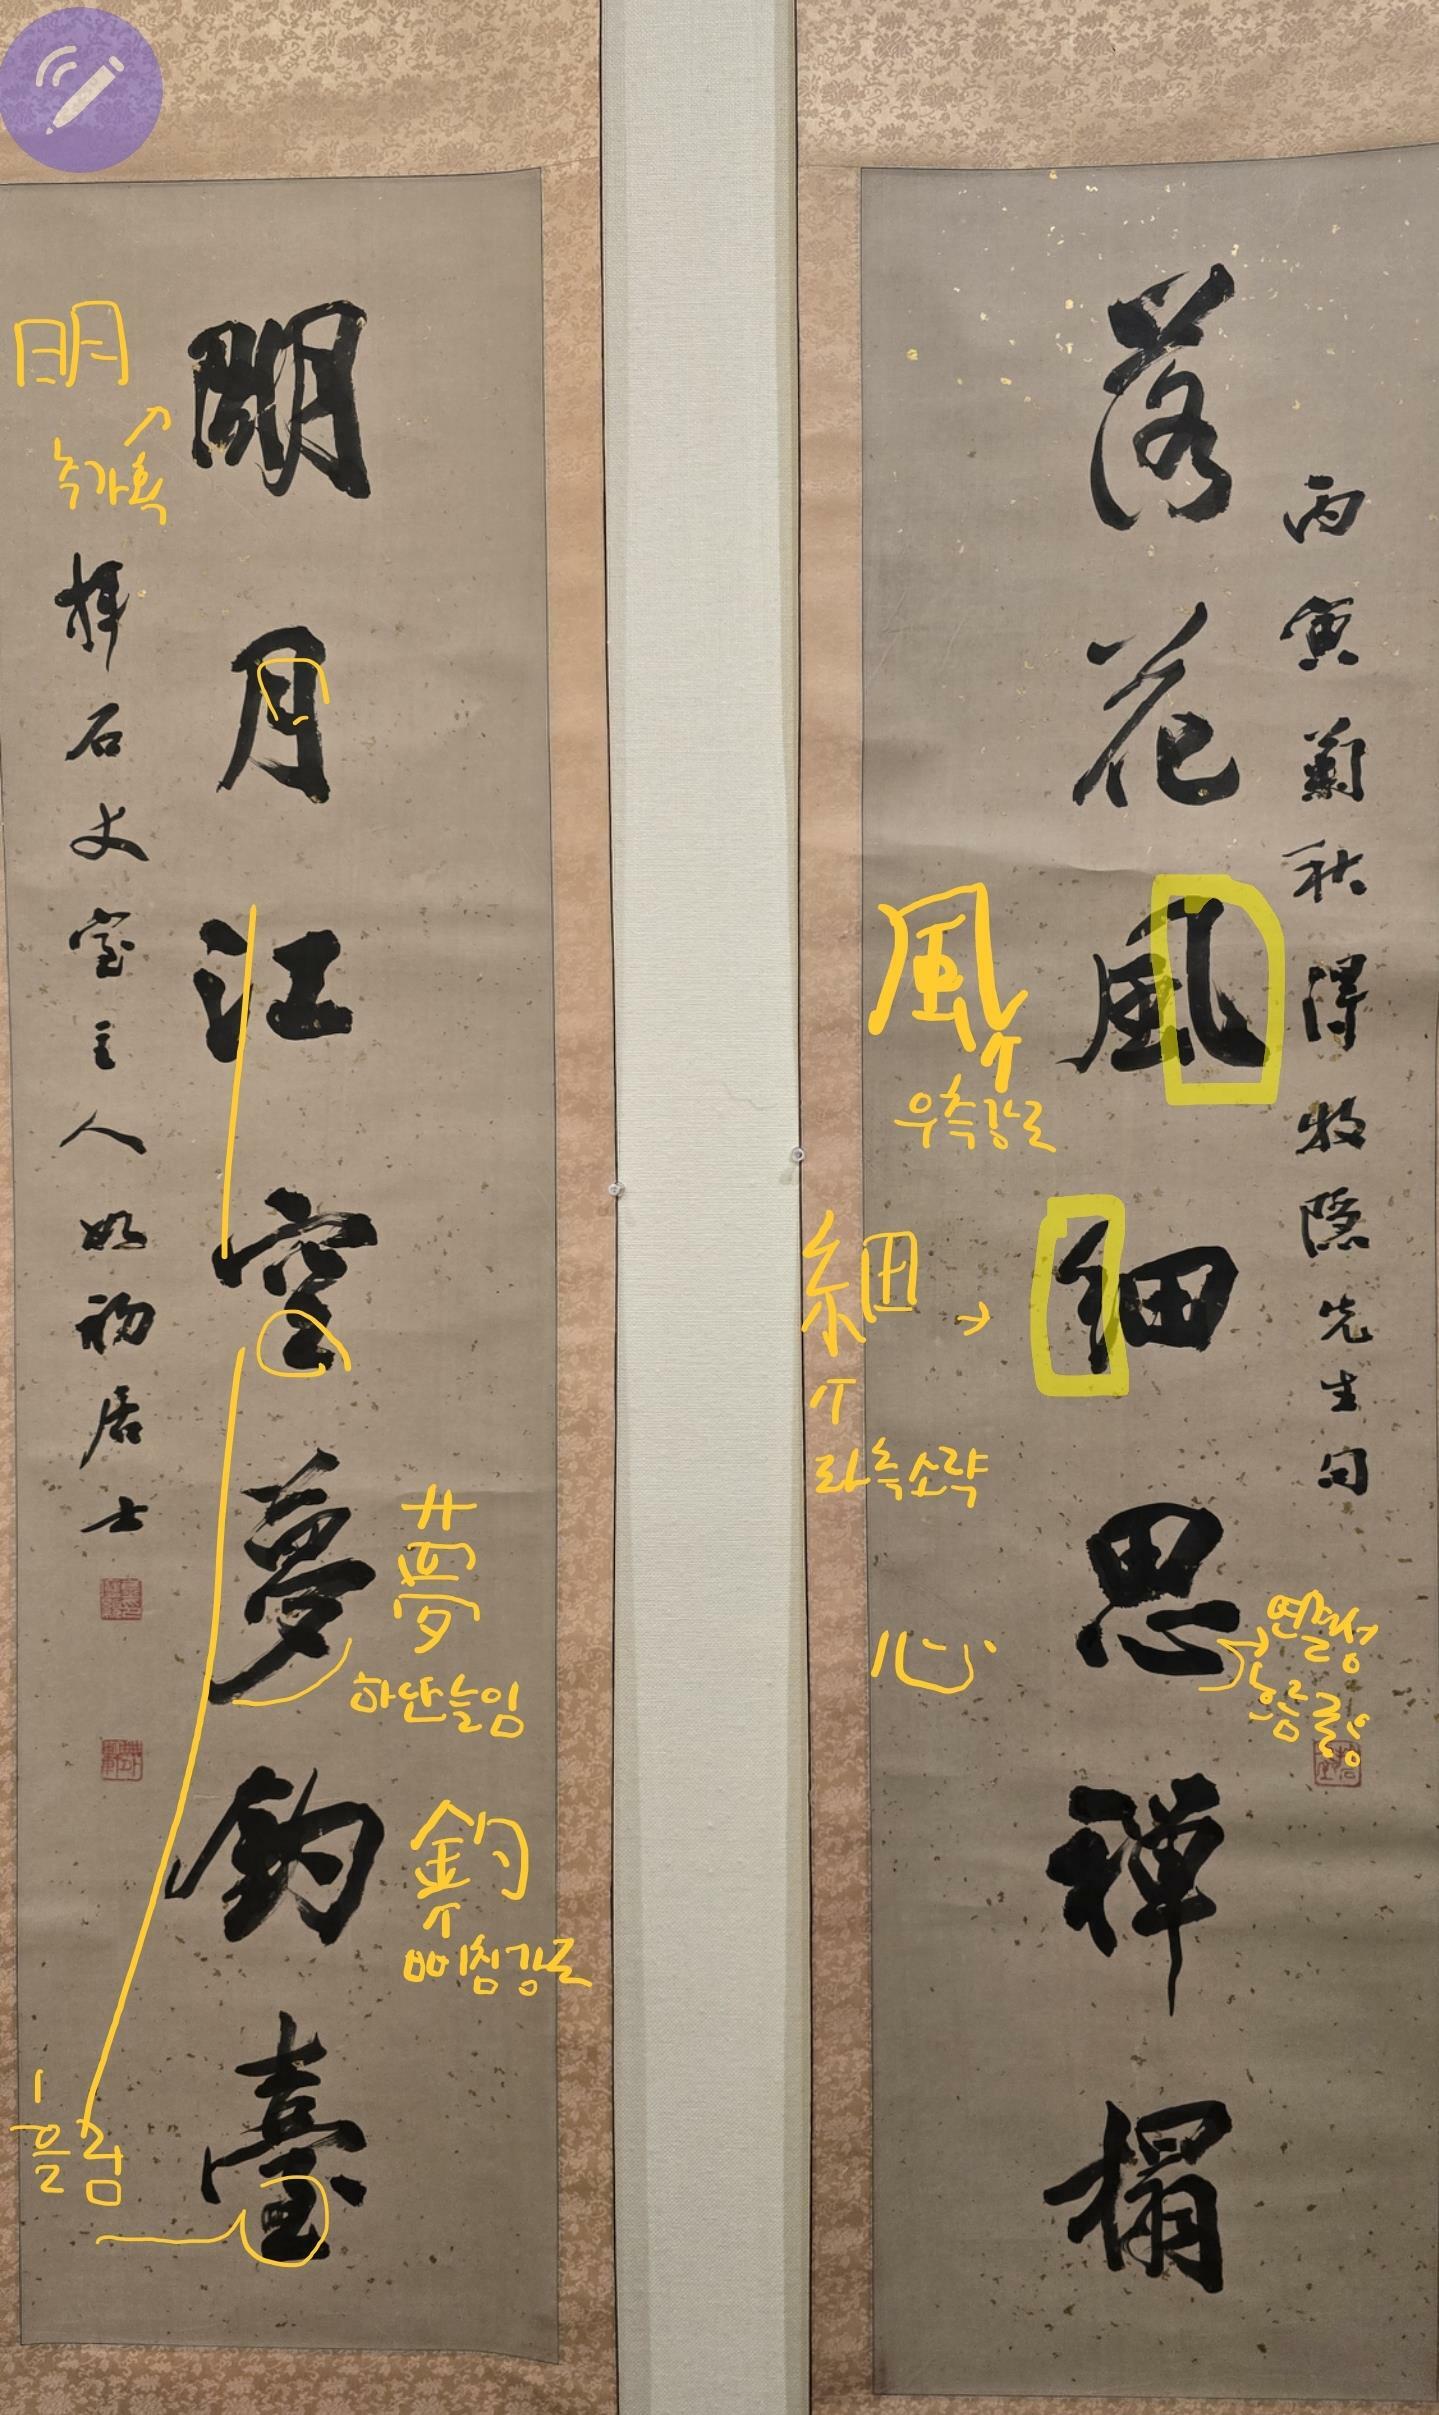 丙寅菊秋得牧隱先生句
落花風細思禪榻
明月江空夢釣臺
拜石丈室主人如初居士
明
추가획
風
우측강조
細
좌측소략
心
연결성
흐름 중앙
夢
하단늘임
釣
삐침강조
흘림